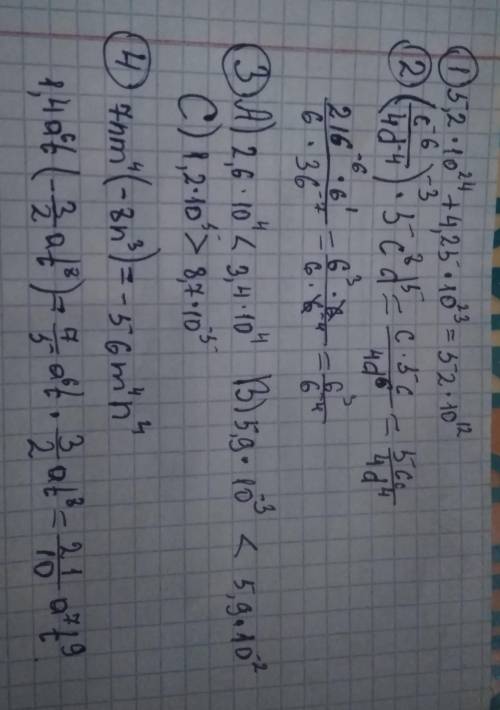 ① 5,2·10²⁴ + 4,25·10²³ = 52·10¹²
② (c⁻⁶/4d⁻⁴)⁻³ · 5c⁸d⁵ = c·5c/4d⁶ = 5cc/4d⁴
216⁻⁶·6¹/6·36⁻⁷ = 6³·6/6·6⁻⁴ = 6³/6⁻⁴
③ A) 2,6·10⁴ < 3,4·10⁴ B) 5,9·10⁻³ < 5,9·10⁻²
C) 1,2·10⁵ > 8,7·10⁻⁵
④ 7nm⁴(-8n³) = -56m⁴n⁴
1,4a⁶t(-3/2at⁸) = 7/5a⁶t·3/2at⁸ = 21/10a⁷t⁹